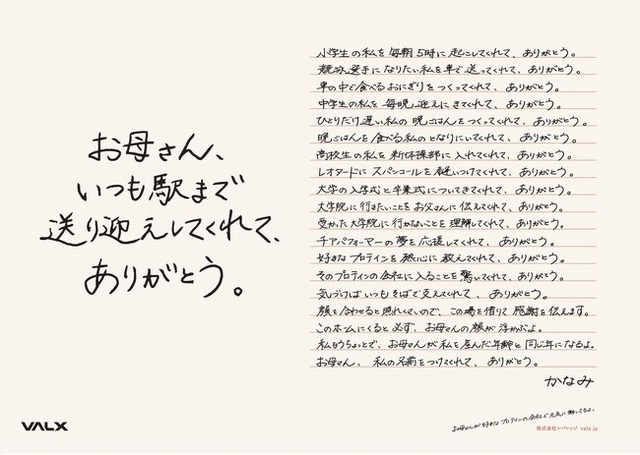 お母さん、
いつも駅まで
送り迎えしてくれて、
ありがとう。
小学生の私を毎朝5時に起こしてくれて、ありがとう。
競泳選手になりたい私を車で送ってくれて、ありがとう。
車の中で食べるおにぎりをつくってくれて、ありがとう。
中学生の私を毎晩迎えにきてくれて、ありがとう。
ひとりだけ遅い私の晩ごはんをつくってくれて、ありがとう。
晩ごはんを食べる私のとなりにいてくれて、ありがとう。
高校生の私を新体操部に入れてくれて、ありがとう。
レオタードにスパンコールを縫いつけてくれて、ありがとう。
大学の入学式と卒業式についてきてくれて、ありがとう。
大学院に行きたいことをお父さんに伝えてくれて、ありがとう。
受かった大学院に行かないことを理解してくれて、ありがとう。
チアパフォーマーの夢を応援してくれて、ありがとう。
好きなプロテインを熱心に教えてくれて、ありがとう。
そのプロテインの会社に入ることを驚いてくれて、ありがとう。
気づけばいつもそばで支えてくれて、ありがとう。
顔を合わせると照れくさいので、この場を借りて感謝を伝えます。
このホームにくると必ず、お母さんの顔が浮かぶよ。
私もうちょっとで、お母さんが私を産んだ年齢と同じ年になるよ。
お母さん、私の名前をつけてくれて、ありがとう。
かなみ
お母さんが好きなプロテインの会社で元気に働いてるよ。
VALX
株式会社レバレッジ valx.jp